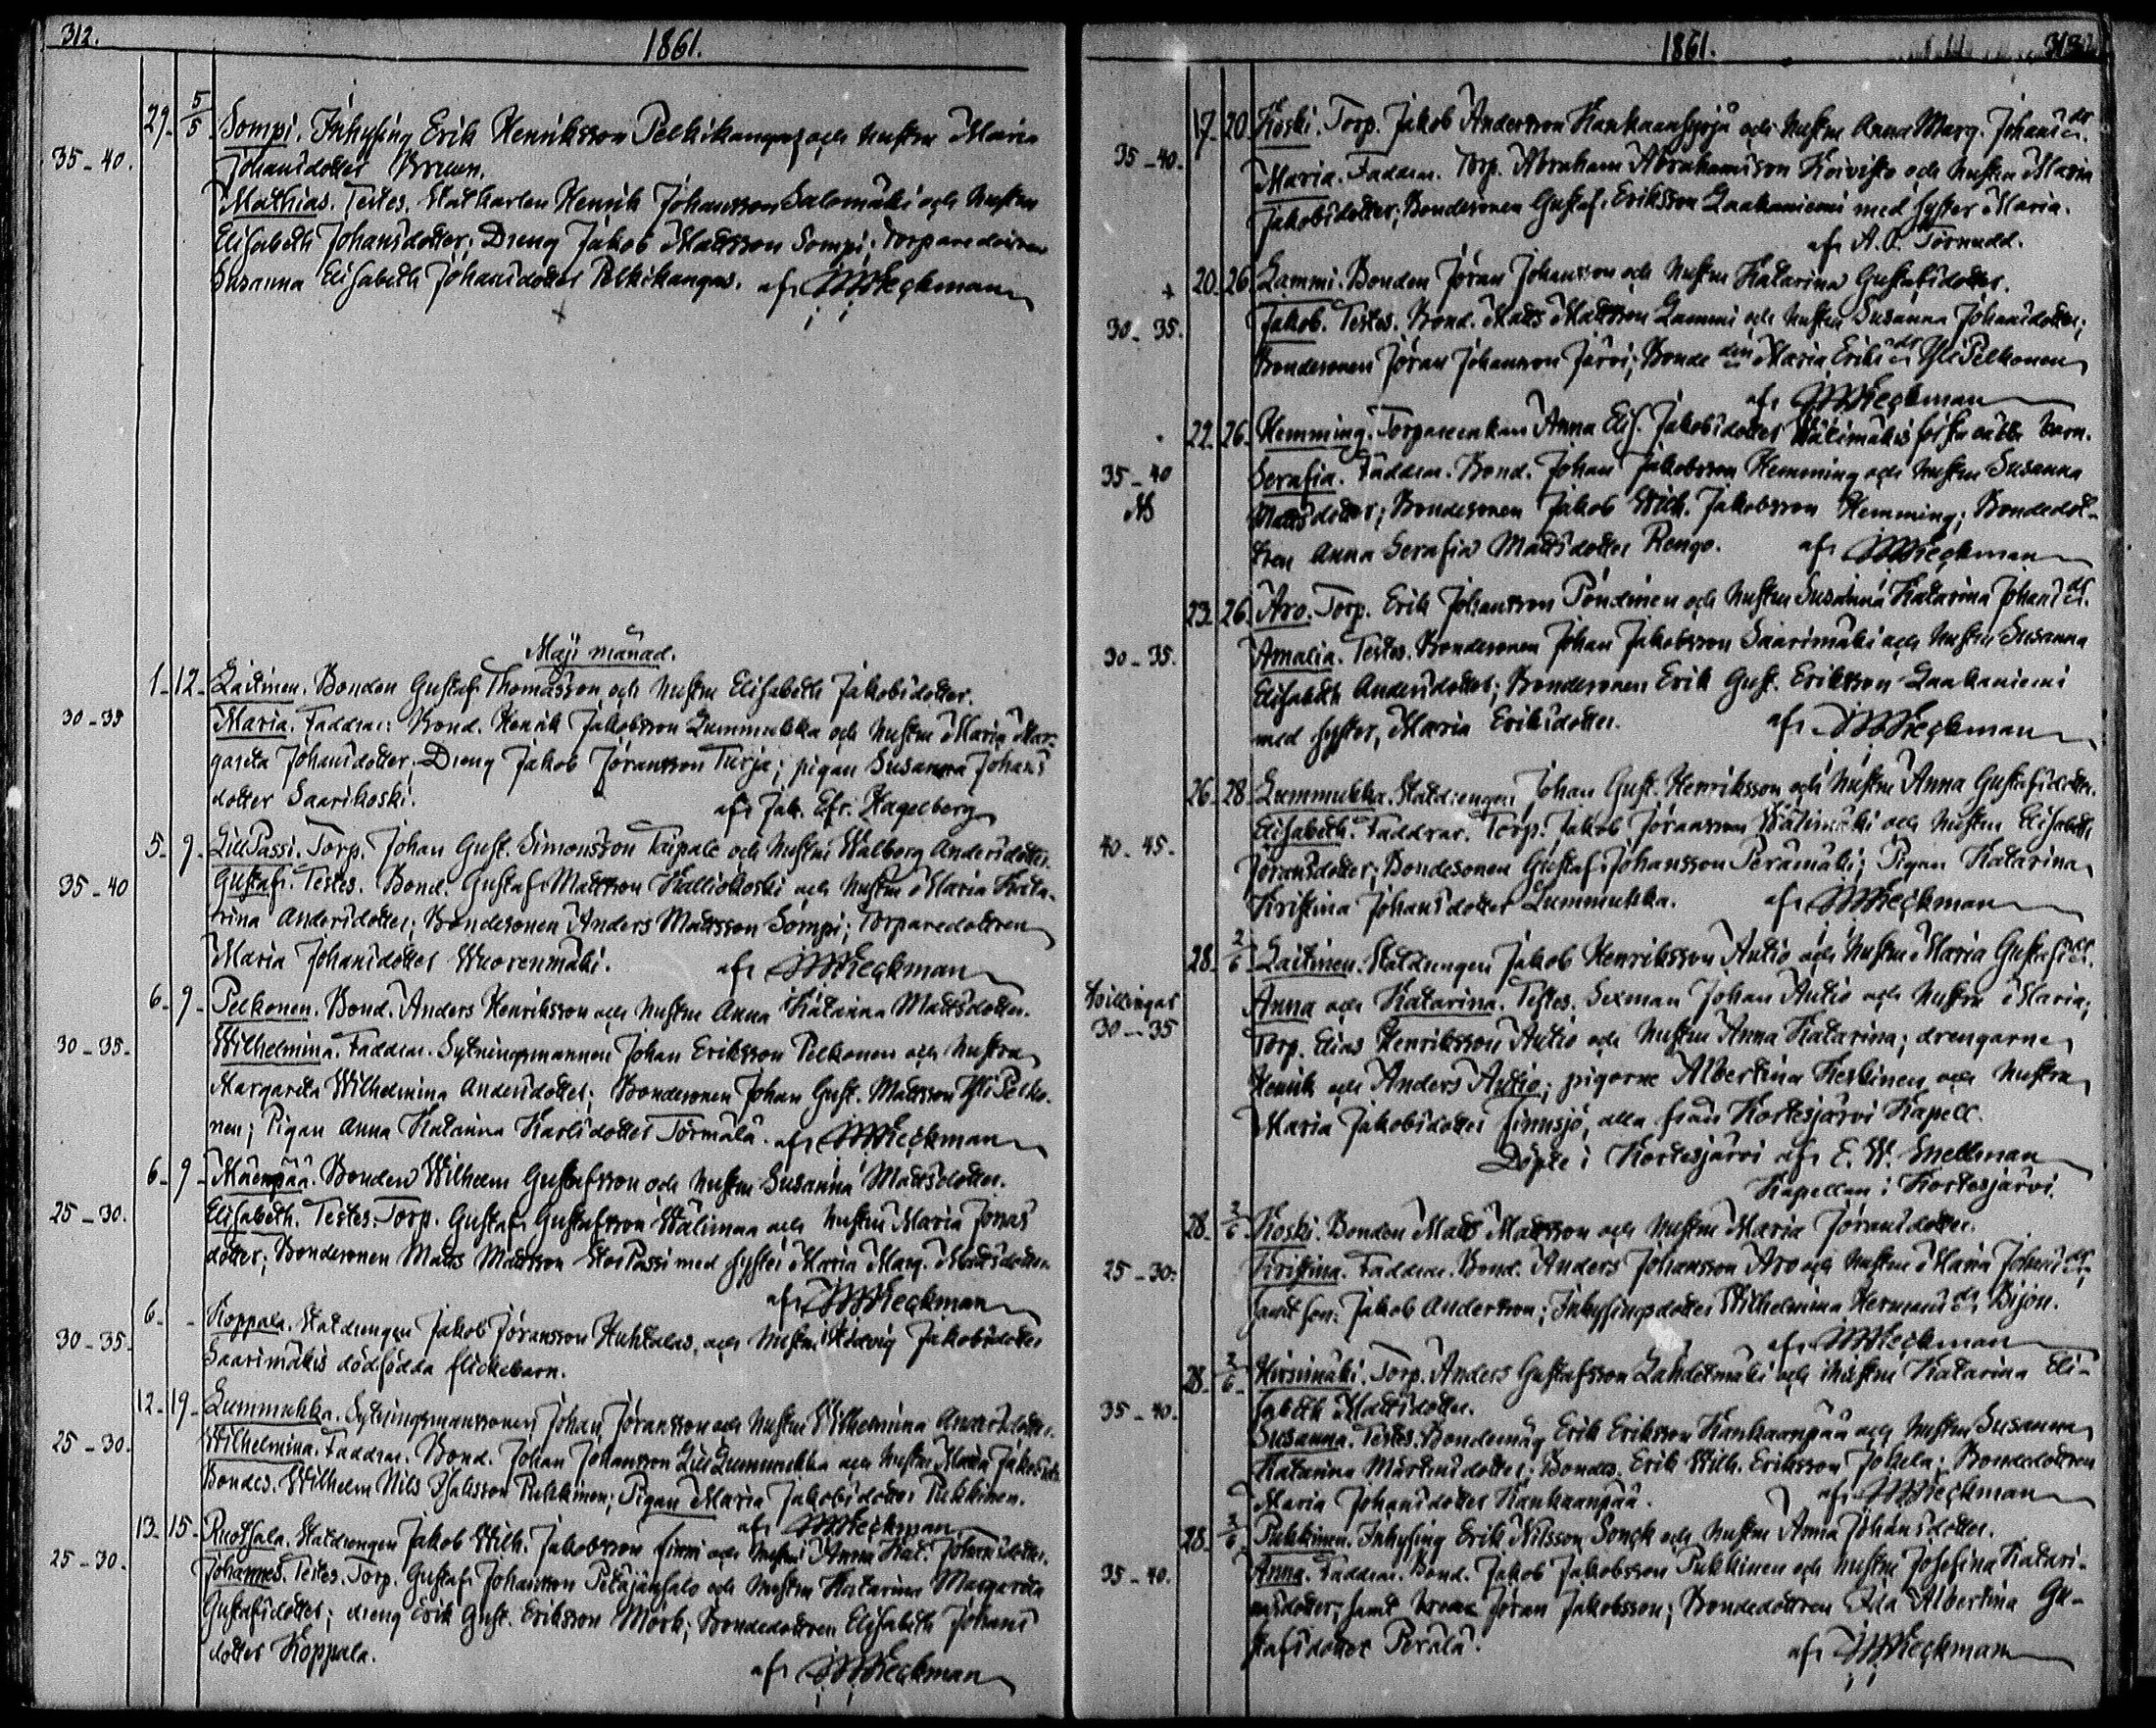 312.
1861.
29. 5/5 Sompi. Inhysing Erik Henriksson Pelkikangas och hustru Maria
35-40. Johansdotter
Mathias. Testes. Statkarlen Henrik Johansson Salomäki och hustru
Elisabeth Johansdotter; Dreng Jakob Mattsson Sompi; Torparedottren
Susanna Elisabeth Johansdotter Pelkikangas. af Wieckman
Maji månad.
1. 12. Laitinen. Bonden Gustaf Thomasson och hustru Elisabeth Jakobsdotter.
30-35 Maria. Faddrar: Bond. Henrik Jakobsson Lummukka och hustru Maria Mar-
gareta Johansdotter; Dreng Jakob Jöransson Turja; pigan Susanna Johans
dotter Saarikoski. af Jak. Efr. Hagelberg
5. 9. LillPassi. Torp. Johan Gust. Simonsson Taipale och hustru Walborg Andersdotter.
35-40 Gustaf. Testes. Bond. Gustaf Mattsson Kalliokoski och hustru Maria Kata-
rina Andersdotter; Bondesonen Anders Mattsson Sompi; Torparedottren
Maria Johansdotter Wuorenmäki. af Wieckman
6. 9. Pelkonen. Bond. Anders Henriksson och hustru Anna Katarina Mattsdotter.
30-35. Wilhelmina. Faddrar. Sytningsmannen Johan Eriksson Pelkonen och hustru
Margareta Wilhelmina Andersdotter; Bondesonen Johan Gust. Mattsson YliPelko-
nen; Pigan Anna Katarina Karlsdotter Törmälä. af Wieckman
6. 9. Mäenpää. Bonden Wilhelm Gustafsson och hustru Susanna Mattsdotter.
25-30. Elisabeth. Testes. Torp. Gustaf Gustafsson Wälimaa och hustru Maria Jonas
dotter; Bondesonen Matts Mattsson StorPassi med syster Maria Marg. Mattsdotter.
af Wieckman
6. - Koppala. Statdrengen Jakob Jöransson Huhtalas, och hustru Hedvig Jakobsdotter
30-35. Saarimäkis dödfödda flickebarn.
12. 19. Lummukka. Sytningsmanssonen Johan Jöransson och hustru Wilhelmina Andersdotter.
25-30. Wilhelmina. Faddrar. Bond. Johan Johansson LillLummukka och hustru Maria Jakobsdr.
Bondes. Wilhelm Nils Isaksson Pukkinen; Pigan Maria Jakobsdotter Pukkinen.
af Wieckman
13. 15. Ruotsala. Statdrengen Jakob Wilh. Jakobsson Finni och hustru Anna Kat. Johansdotter.
25-30. Johannes. Testes. Torp. Gustaf Johansson Petäjänsalo och hustru Katarina Margareta
Gustafsdotter; dreng Erik Gust. Eriksson Mörk; Bondedottren Elisabeth Johans
dotter Koppala.
af Wieckman
1861.
313.
17. 20. Koski. Torp. Jakob Andersson Kankaansyrjä och hustru Anna Marg. Johansdr.
35-40. Maria. Faddrar. Torp. Abraham Abrahamsson Koivisto och hustru Maria
Jakobsdotter; Bondesonen Gustaf Eriksson Laakaniemi med syster Maria.
af A. P. Törnudd.
20. 26. Lammi. Bonden Jöran Johansson och hustru Katarina Gustafsdotter.
30-35. Jakob. Testes. Bond. Matts Mattsson Lammi och hustru Susanna Johansdotter;
Bondesonen Jöran Johansson Järvi; Bondedn Maria Eriksdr YliPelkonen
af Wieckman
22. 26. Hemming. Torpareenkan Anna Elis. Jakobsdotter Wälimäkis oäkta barn.
35-40 Serafia. Faddrar. Bond. Johan Jakobsson Hemming och hustru Susanna
Mattsdotter; Bondesonen Jakob Wilh. Jakobsson Hemming; Bondedot-
tren Anna Serafia Mattsdotter Rengo. af Wieckman
23. 26. Aro. Torp. Erik Johansson Pöndinen och hustru Susanna Katarina Johansdr.
30-35. Amalia. Testes. Bondesonen Johan Jakobsson Saarimäki och hustru Susanna
Elisabeth Andersdotter; Bondesonen Erik Gust. Eriksson Laakaniemi
med syster, Maria Eriksdotter. af Wieckman
26. 28. Lummukka. Statdrengen Johan Gust. Henriksson och hustru Anna Gustafsdotter.
40-45. Elisabeth. Faddrar. Torp. Jakob Jöransson Wälimäki och hustru Elisabeth
Jöransdotter; Bondesonen Gustaf Johansson Perämäki; Pigan Katarina
Kristina Johansdotter Lummukka. af Wieckman
28. 2/6 Laitinen. Statdrengen Jakob Henriksson Autio och hustru Maria Gustafsdr.
Tvillingar Anna och Katarina. Testes. Sexman Johan Autio och hustru Maria;
30-35 Torp. Elias Henriksson Autio och hustru Anna Katarina; drengarne
Henrik och Anders Autio; pigorne Albertina Keskinen och hustru
Maria Jakobsdotter Finnsjö, alla från Kortesjärvi Kapell.
Döpte i Kortesjärvi af E. W. Snellman
Kapellan i Kortesjärvi.
28. 2/6 Koski. Bonden Matts Mattsson och hustru Maria Jöransdotter.
25-30. Kristina. Faddrar. Bond. Anders Johansson Aro och hustru Maria Johansdr
samt son Jakob Andersson; Inhysingsdotter Wilhelmina Hermansdr Bijon.
af Wieckman
28. 2/6 Hirsimäki. Torp. Anders Gustafsson Lahdetmäki och hustru Katarina Eli-
35-40. sabeth Mattsdotter.
Susanna. Testes. Bondemåg Erik Eriksson Kankaanpää och hustru Susanna
Katarina Mårtensdotter; Bondes. Erik Wilh. Eriksson Jokela; Bondedottren
Maria Johansdotter Kankaanpää. af Wieckman
28. 2/6 Pukkinen. Inhysing Erik Nilsson Sonck och hustru Anna Johansdotter.
35-40. Anna. Faddrar. Bond. Jakob Jakobsson Pukkinen och hustru Josefina Katari-
nasdotter; samt Jöran Jakobsson; Bondedottren Ida Albertina Gu-
stafsdotter Perälä. af Wieckman